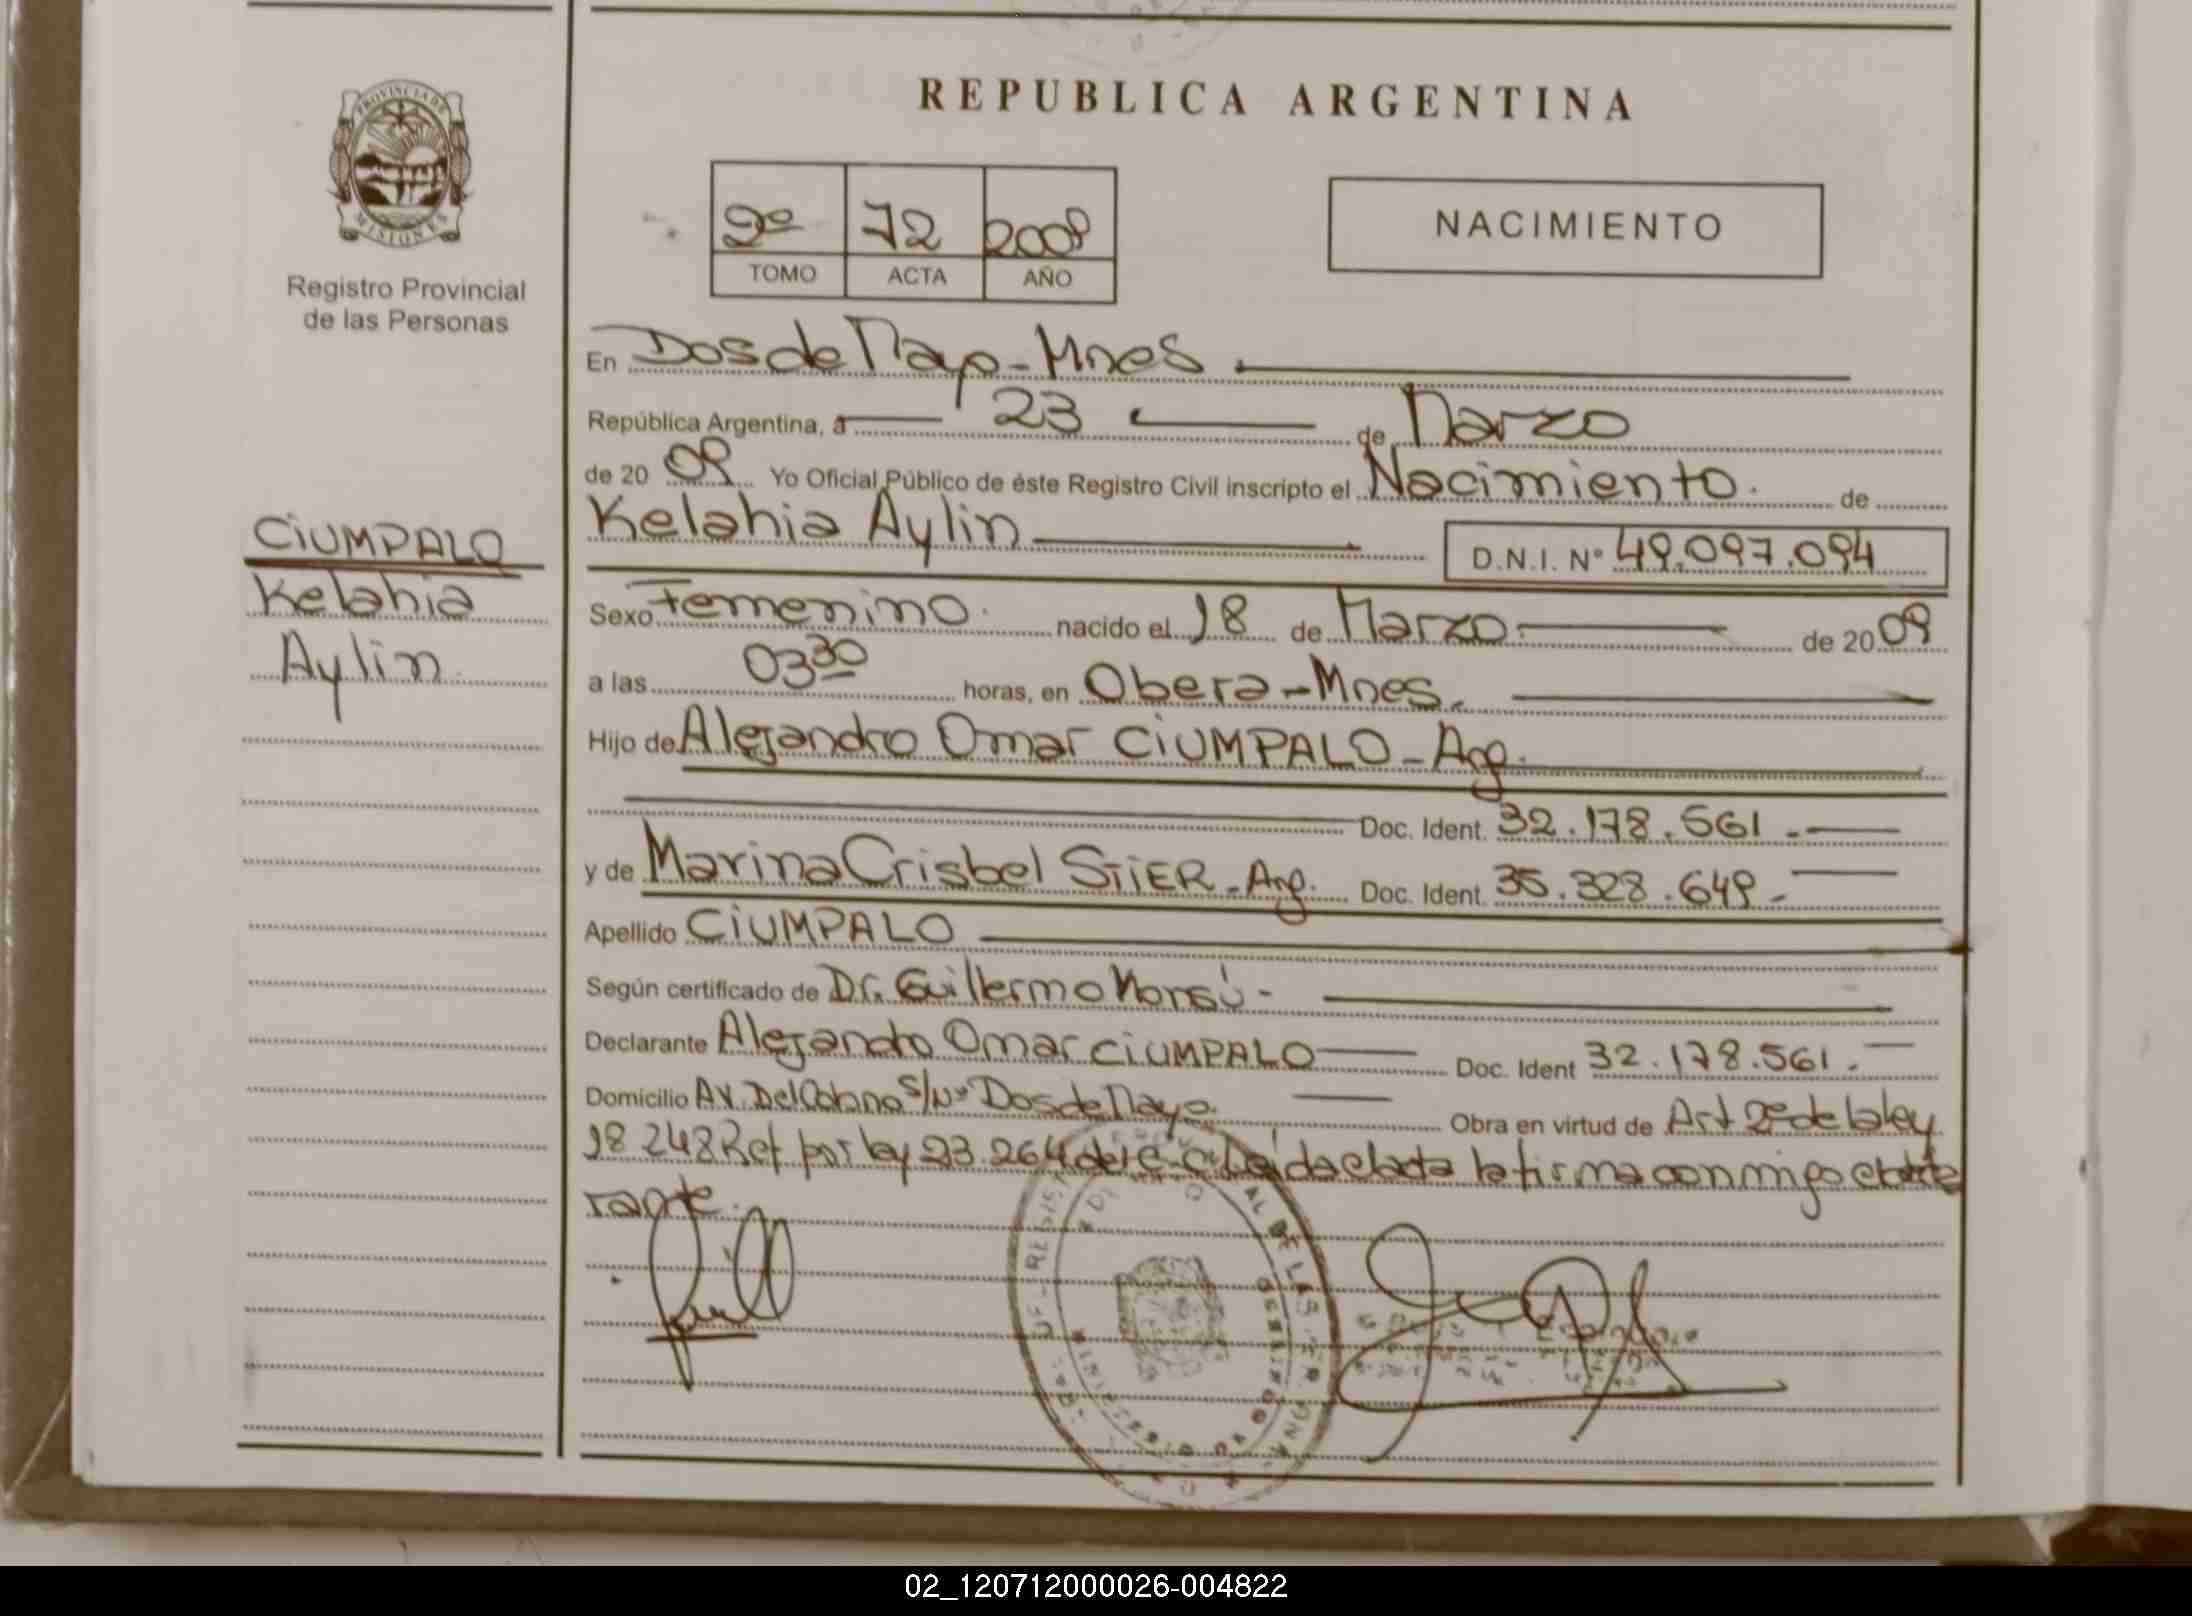 REPUBLICA ARGENTINA
PROVINCIA DE
MISIONES
Registro Provincial
de las Personas
2º 72 2009
TOMO ACTA AÑO
NACIMIENTO
En Dos de Mayo - Mnes
República Argentina, a 23 de Marzo
de 2009 Yo Oficial Público de éste Registro Civil inscripto el Nacimiento. de
Kelahia Aylin D.N.I. Nº 49.097.094
CiUMPALO
Kelahia
Aylin
Sexo Femenino. nacido el 18 de Marzo. de 2009
a las 03 30 horas, en Obera - Mnes.
Hijo de Alejandro Omar CiUMPALO - Arg.
Doc. Ident. 32.178.561.-
y de Marina Crisbel STiER - Arg. Doc. Ident. 35.328.649.-
Apellido CiUMPALO
Según certificado de Dr. Guillermo -
Declarante Alejandro Omar CiUMPALO Doc. Ident 32.178.561.-
Domicilio Av. Del S/Nº Dos de Mayo. Obra en virtud de Art 2º de la ley
18 248 Ref por ley 23.264 del C.C. Leida el acta la firma conmigo el decla
rante.
02_120712000026-004822